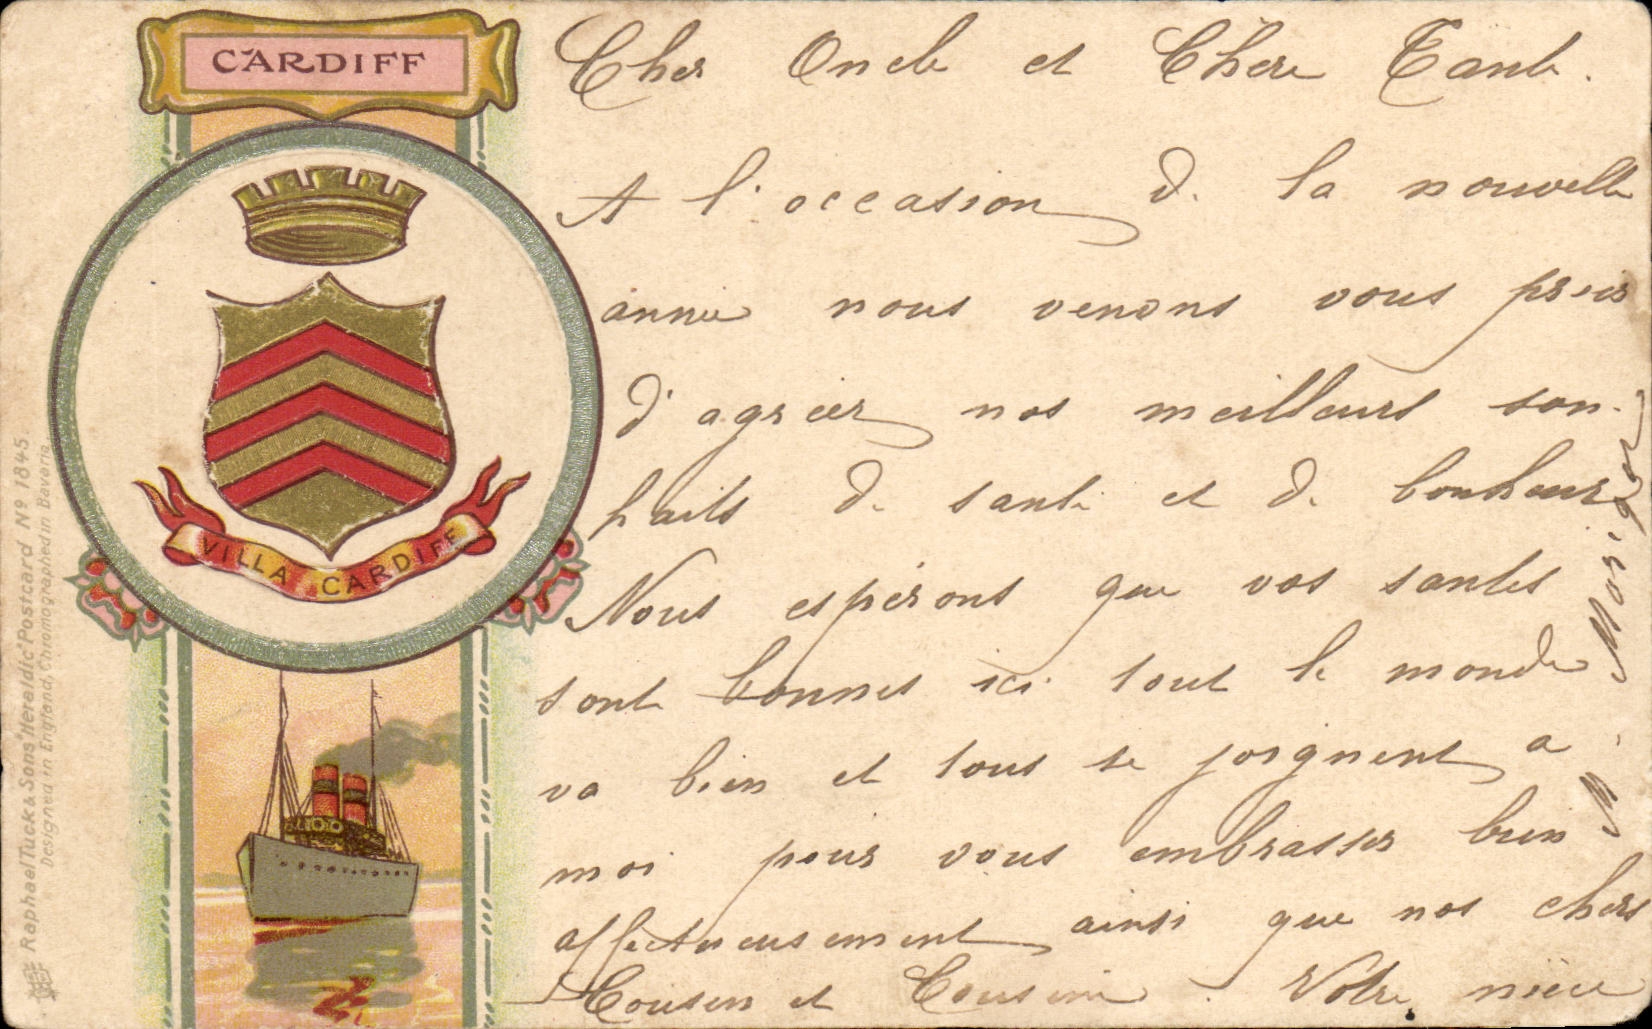 CARDIFF
VILLA CARDIFF
Raphael Tuck & Sons' "Heraldic" Postcard Nº 1845.
Designed in England, Chromographed in Bavaria.
Cher Oncle et Chère Tante.
A l'occasion de la nouvelle
année nous venons vous prier
d'agréer nos meilleurs sou-
haits de santé et de bonheur
Nous espérons que vos santés
sont bonnes ici tout le monde
va bien et tous se joignent a
moi pour vous embrasser bien
affectueusement ainsi que nos chers
Cousin et Cousine. Votre nièce